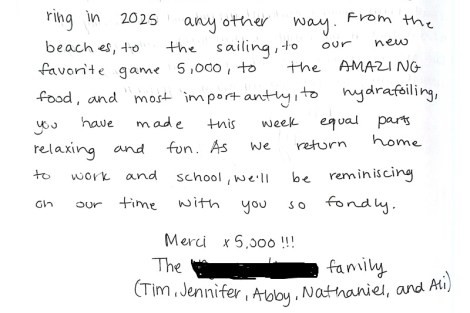 ring in 2025 any other way. From the
beaches, to the sailing, to our new
favorite game 5,000, to the AMAZING
food, and most importantly, to hydrafoiling,
you have made this week equal parts
relaxing and fun. As we return home
to work and school, we'll be reminiscing
on our time with you so fondly.
Merci x 5,000 !!!
The family
(Tim, Jennifer, Abby, Nathaniel, and Ali)